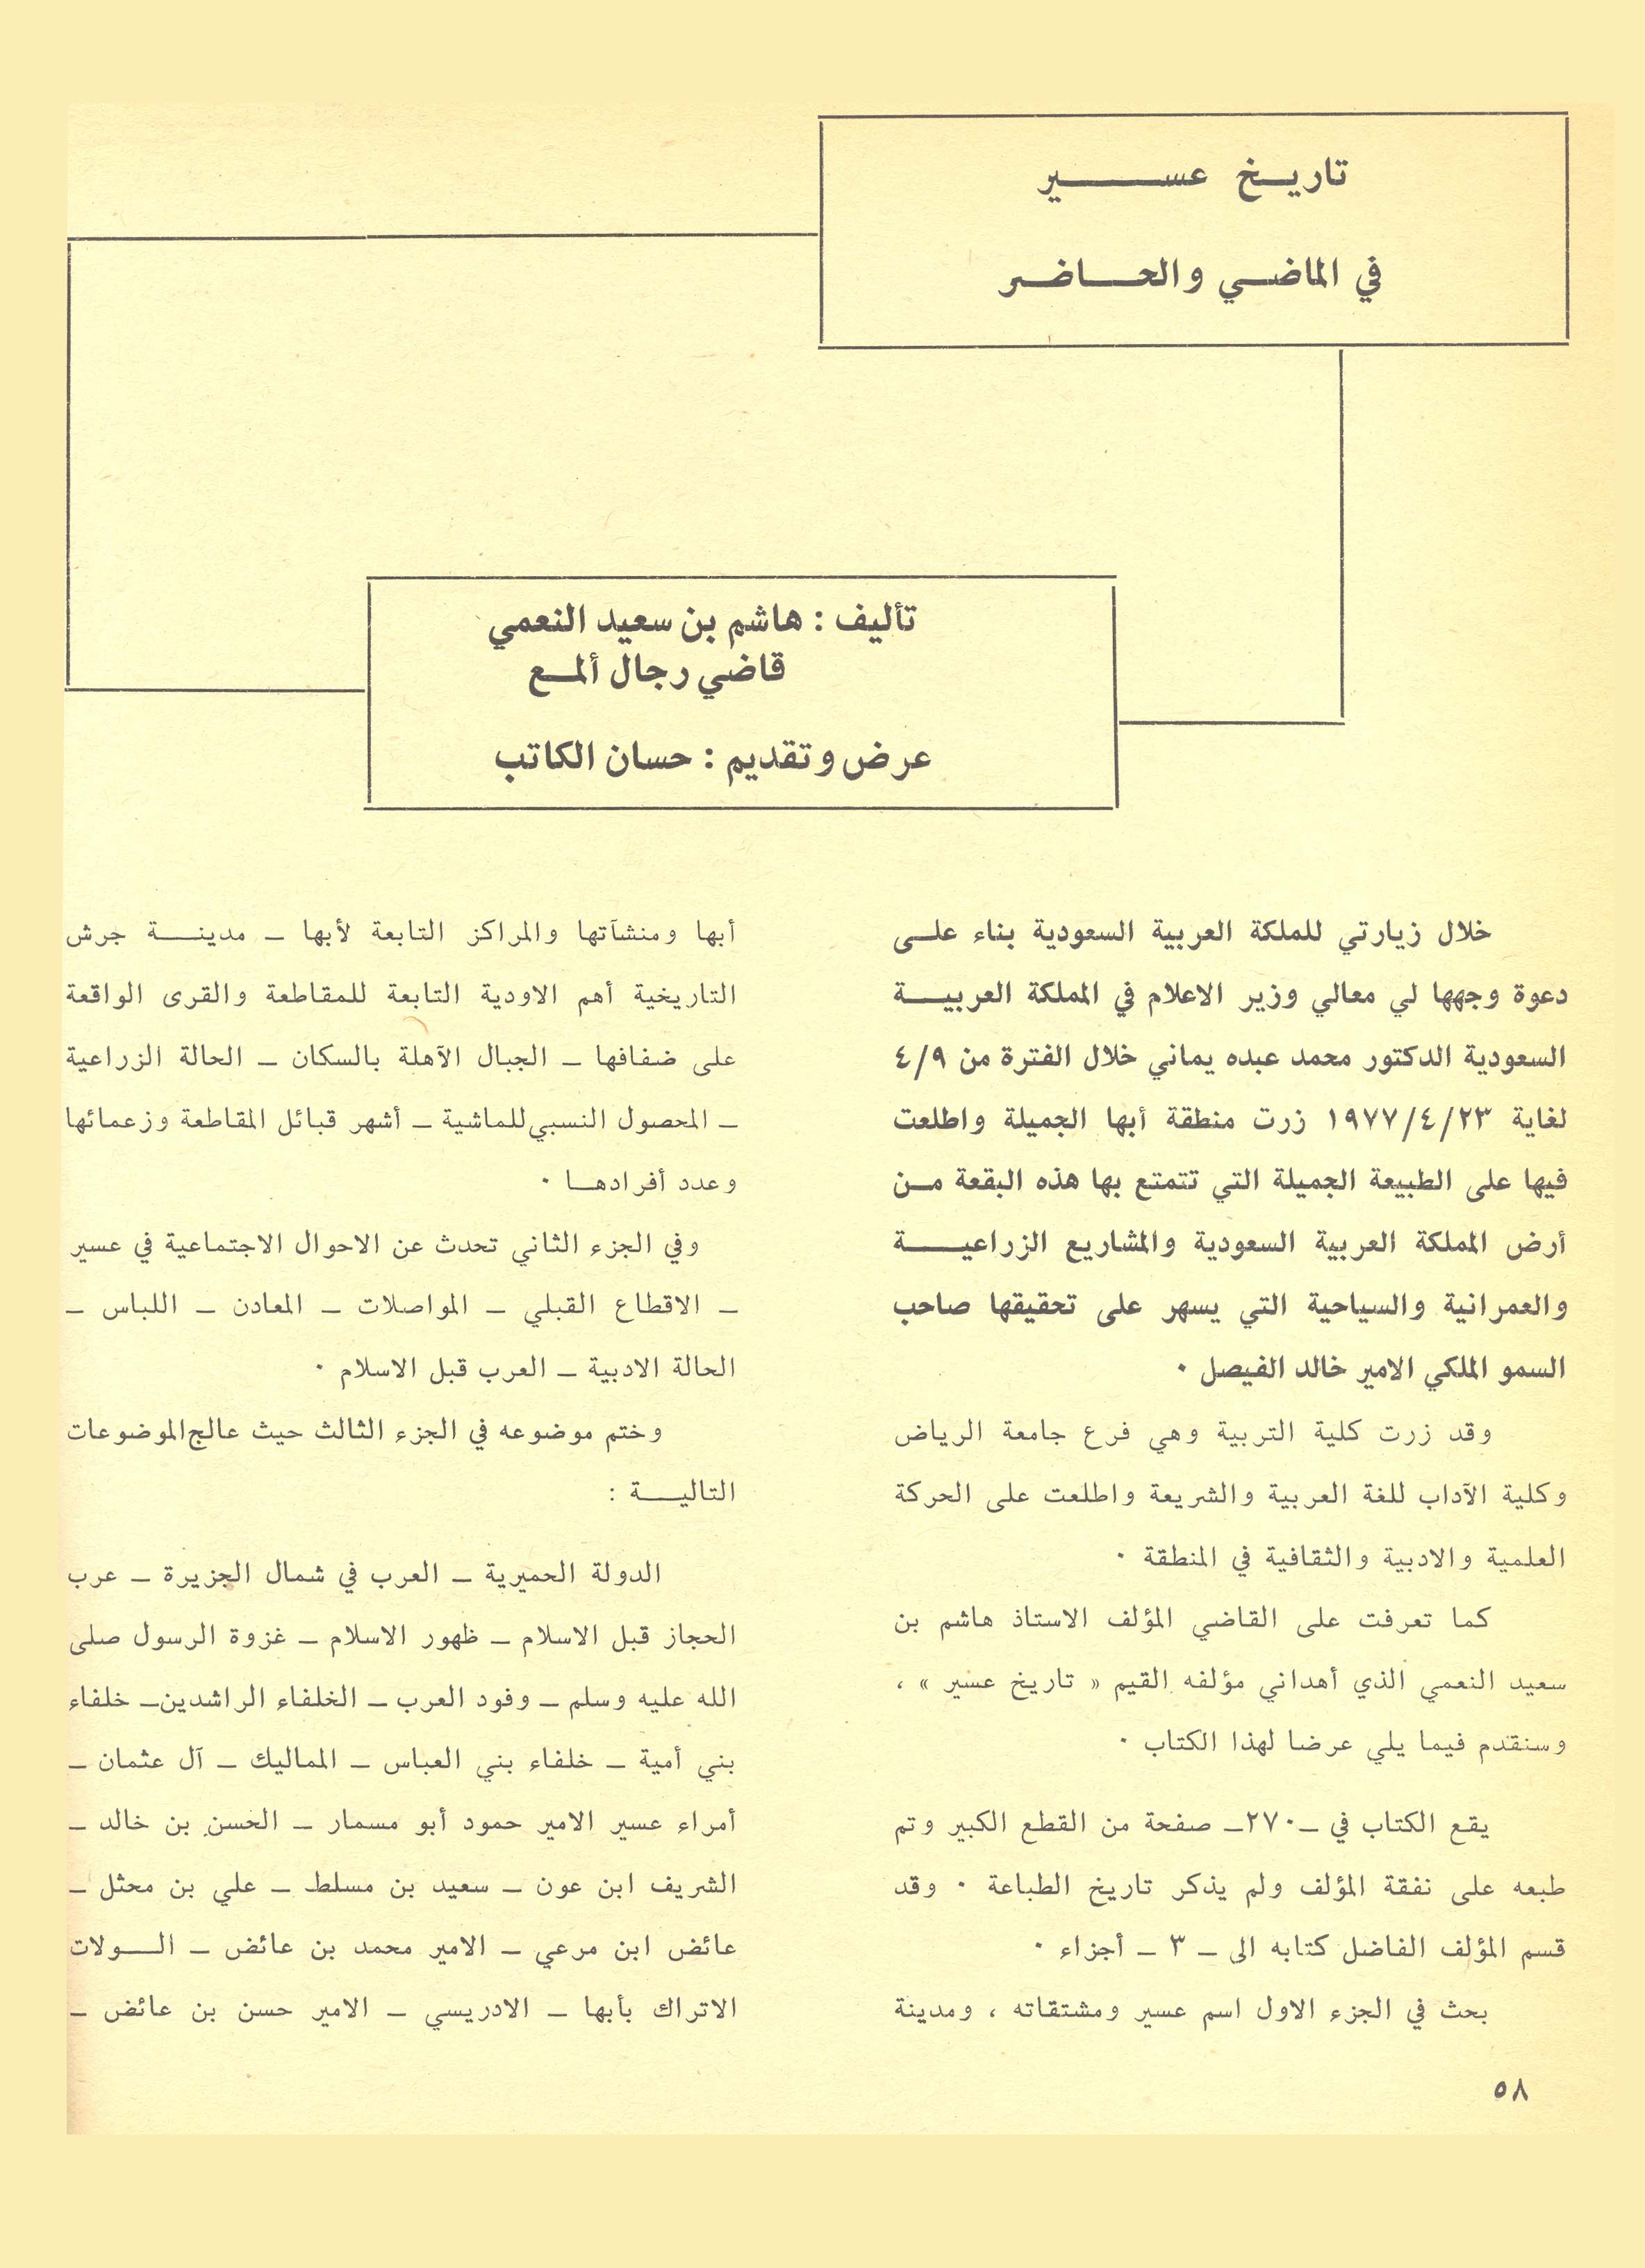 تاريخ عسير
في الماضي والحاضر
تأليف : هاشم بن سعيد النعمي
قاضي رجال ألمع
عرض وتقديم : حسان الكاتب
خلال زيارتي للملكة العربية السعودية بناء على
دعوة وجهها لي معالي وزير الاعلام في المملكة العربية
السعودية الدكتور محمد عبده يماني خلال الفترة من ٤/٩
لغاية ١٩٧٧/٤/٢٣ زرت منطقة أبها الجميلة واطلعت
فيها على الطبيعة الجميلة التي تتمتع بها هذه البقعة من
أرض المملكة العربية السعودية والمشاريع الزراعية
والعمرانية والسياحية التي يسهر على تحقيقها صاحب
السمو الملكي الامير خالد الفيصل ٠
وقد زرت كلية التربية وهي فرع جامعة الرياض
وكلية الآداب للغة العربية والشريعة واطلعت على الحركة
العلمية والادبية والثقافية في المنطقة ٠
كما تعرفت على القاضي المؤلف الاستاذ هاشم بن
سعيد النعمي الذي أهداني مؤلفه القيم « تاريخ عسير » ،
وسنقدم فيما يلي عرضا لهذا الكتاب ٠
يقع الكتاب في ـ٢٧٠ـ صفحة من القطع الكبير وتم
طبعه على نفقة المؤلف ولم يذكر تاريخ الطباعة ٠ وقد
قسم المؤلف الفاضل كتابه الى ـ ٣ ـ أجزاء ٠
بحث في الجزء الاول اسم عسير ومشتقاته ، ومدينة
أبها ومنشآتها والمراكز التابعة لأبها ـ مدينة جرش
التاريخية أهم الاودية التابعة للمقاطعة والقرى الواقعة
على ضفافها ـ الجبال الآهلة بالسكان ـ الحالة الزراعية
ـ المحصول النسبي للماشية ـ أشهر قبائل المقاطعة وزعمائها
وعدد أفرادها ٠
وفي الجزء الثاني تحدث عن الاحوال الاجتماعية في عسير
ـ الاقطاع القبلي ـ المواصلات ـ المعادن ـ اللباس ـ
الحالة الادبية ـ العرب قبل الاسلام ٠
وختم موضوعه في الجزء الثالث حيث عالج الموضوعات
التالية :
الدولة الحميرية ـ العرب في شمال الجزيرة ـ عرب
الحجاز قبل الاسلام ـ ظهور الاسلام ـ غزوة الرسول صلى
الله عليه وسلم ـ وفود العرب ـ الخلفاء الراشدين ـ خلفاء
بني أمية ـ خلفاء بني العباس ـ المماليك ـ آل عثمان ـ
أمراء عسير الامير حمود أبو مسمار ـ الحسن بن خالد ـ
الشريف ابن عون ـ سعيد بن مسلط ـ علي بن محثل ـ
عائض ابن مرعي ـ الامير محمد بن عائض ـ الولات
الاتراك بأبها ـ الادريسي ـ الامير حسن بن عائض ـ
٥٨